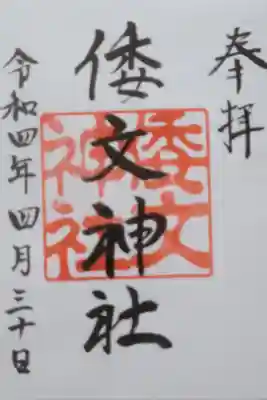 奉拝
倭文神社
倭文
神社
令和四年四月三十日